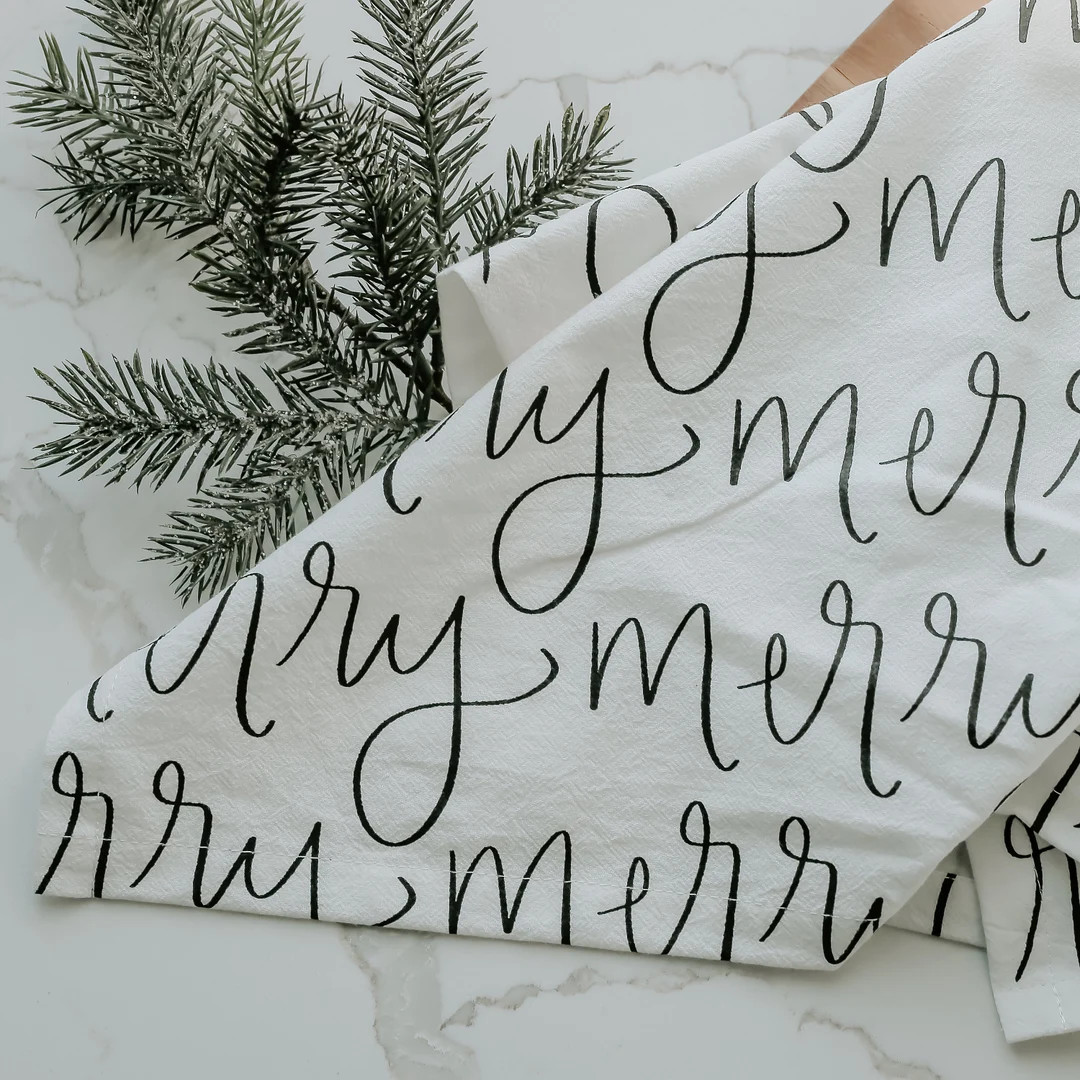 merry
merry
rry merry
rry merry